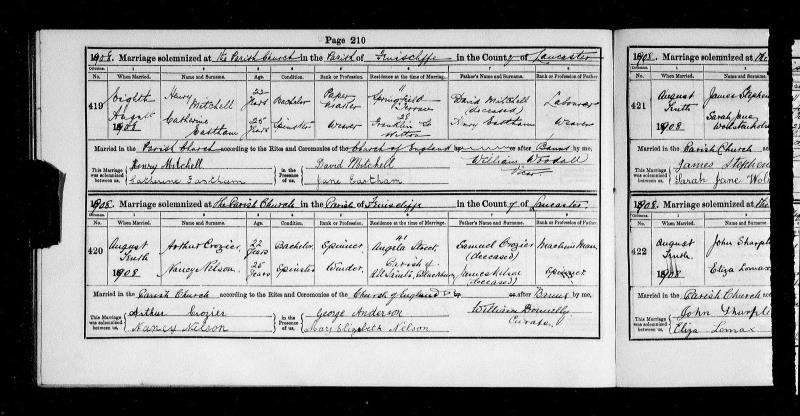 Page 210
1908. Marriage solemnized at the Parish Church in the Parish of Feniscliffe in the County of Lancaster
Columns. 1 2 3 4 5 6 7 8
No. When Married. Name and Surname. Age. Condition. Rank or Profession. Residence at the time of Marriage. Father's Name and Surname. Rank or Profession of Father.
419 Eighth August 1908 Henry Mitchell 22 Years Bachelor Paper 11 Springfield Terrace David Mitchell (deceased) Labourer
Catherine Eastham 25 Years Spinster Weaver 28 Franklin St Witton Henry Eastham Weaver
Married in the Parish Church according to the Rites and Ceremonies of the Church of England by or after Banns by me,
This Marriage was solemnized between us, Henry Mitchell in the Presence of us, David Mitchell William Woodall
Catherine Eastham Jane Eastham Vicar
1908. Marriage solemnized at the Parish Church in the Parish of Feniscliffe in the County of Lancaster.
Columns. 1 2 3 4 5 6 7 8
No. When Married. Name and Surname. Age. Condition. Rank or Profession. Residence at the time of Marriage. Father's Name and Surname. Rank or Profession of Father.
420 August Tenth 1908 Arthur Crozier, 22 Years Bachelor, Spinner, 41 Angela Street, Samuel Crozier (deceased) Machine Man
Nancy Nelson, 25 Years Spinster Winder, Parish of All Saints, Blackburn James Nelson (deceased) Spinner
Married in the Parish Church according to the Rites and Ceremonies of the Church of England by or after Banns by me,
This Marriage was solemnized between us, Arthur Crozier in the Presence of us, George Anderson William Donnelly
Nancy Nelson Mary Elizabeth Nelson Curate
1908. Marriage solemnized at the
Columns. 1 2
No. When Married. Name and Surname.
421 August Tenth 1908 James Stephen
Sarah Jane
Married in the Parish Church
This Marriage was solemnized between us, James Stephen
Sarah Jane
1908. Marriage solemnized at the
Columns. 1 2
No. When Married. Name and Surname.
422 August Tenth 1908 John Sharple
Eliza Lomax
Married in the Parish Church
This Marriage was solemnized between us, John Sharple
Eliza Lomax